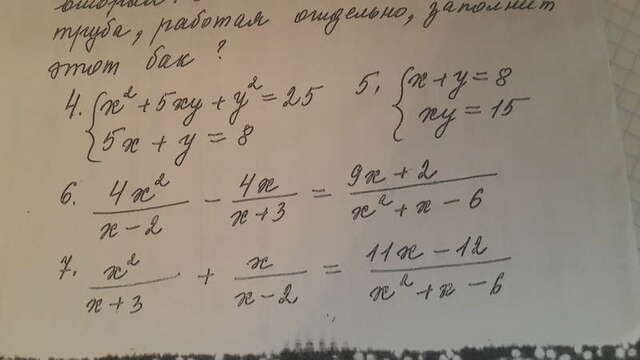 труба, работая отдельно, заполнит
этот бак?
4. { x² + 5xy + y² = 25
5x + y = 8
5. { x + y = 8
xy = 15
6. 4x²/(x - 2) - 4x/(x + 3) = (9x + 2)/(x² + x - 6)
7. x²/(x + 3) + x/(x - 2) = (11x - 12)/(x² + x - 6)